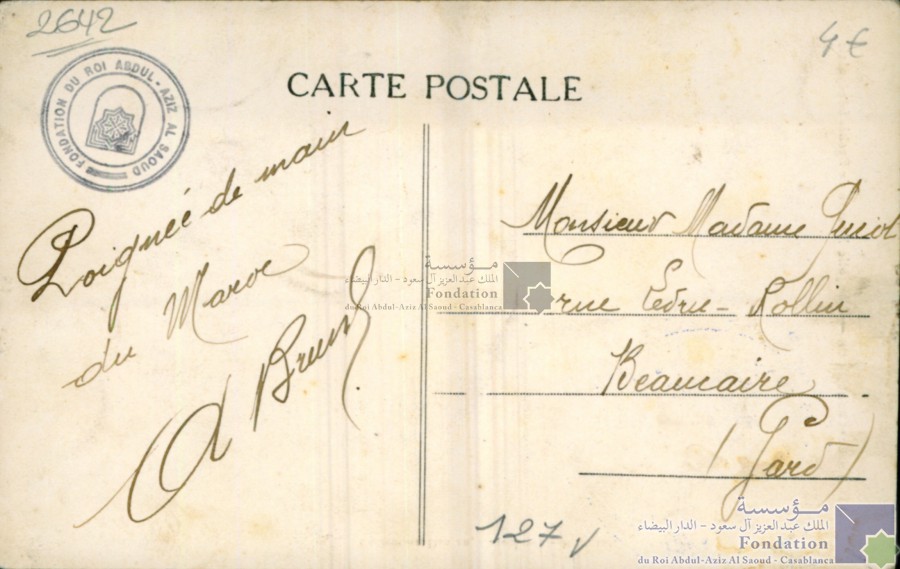 2642
4 €
FONDATION DU ROI ABDUL-AZIZ AL SAOUD
CARTE POSTALE
Poignée de main
du Maroc
A Brun
Monsieur Madame
rue Ledru-Rollin
Beaucaire
(Gard)
127 v
مؤسسة
الملك عبد العزيز آل سعود - الدار البيضاء
Fondation
du Roi Abdul-Aziz Al Saoud - Casablanca
مؤسسة
الملك عبد العزيز آل سعود - الدار البيضاء
Fondation
du Roi Abdul-Aziz Al Saoud - Casablanca